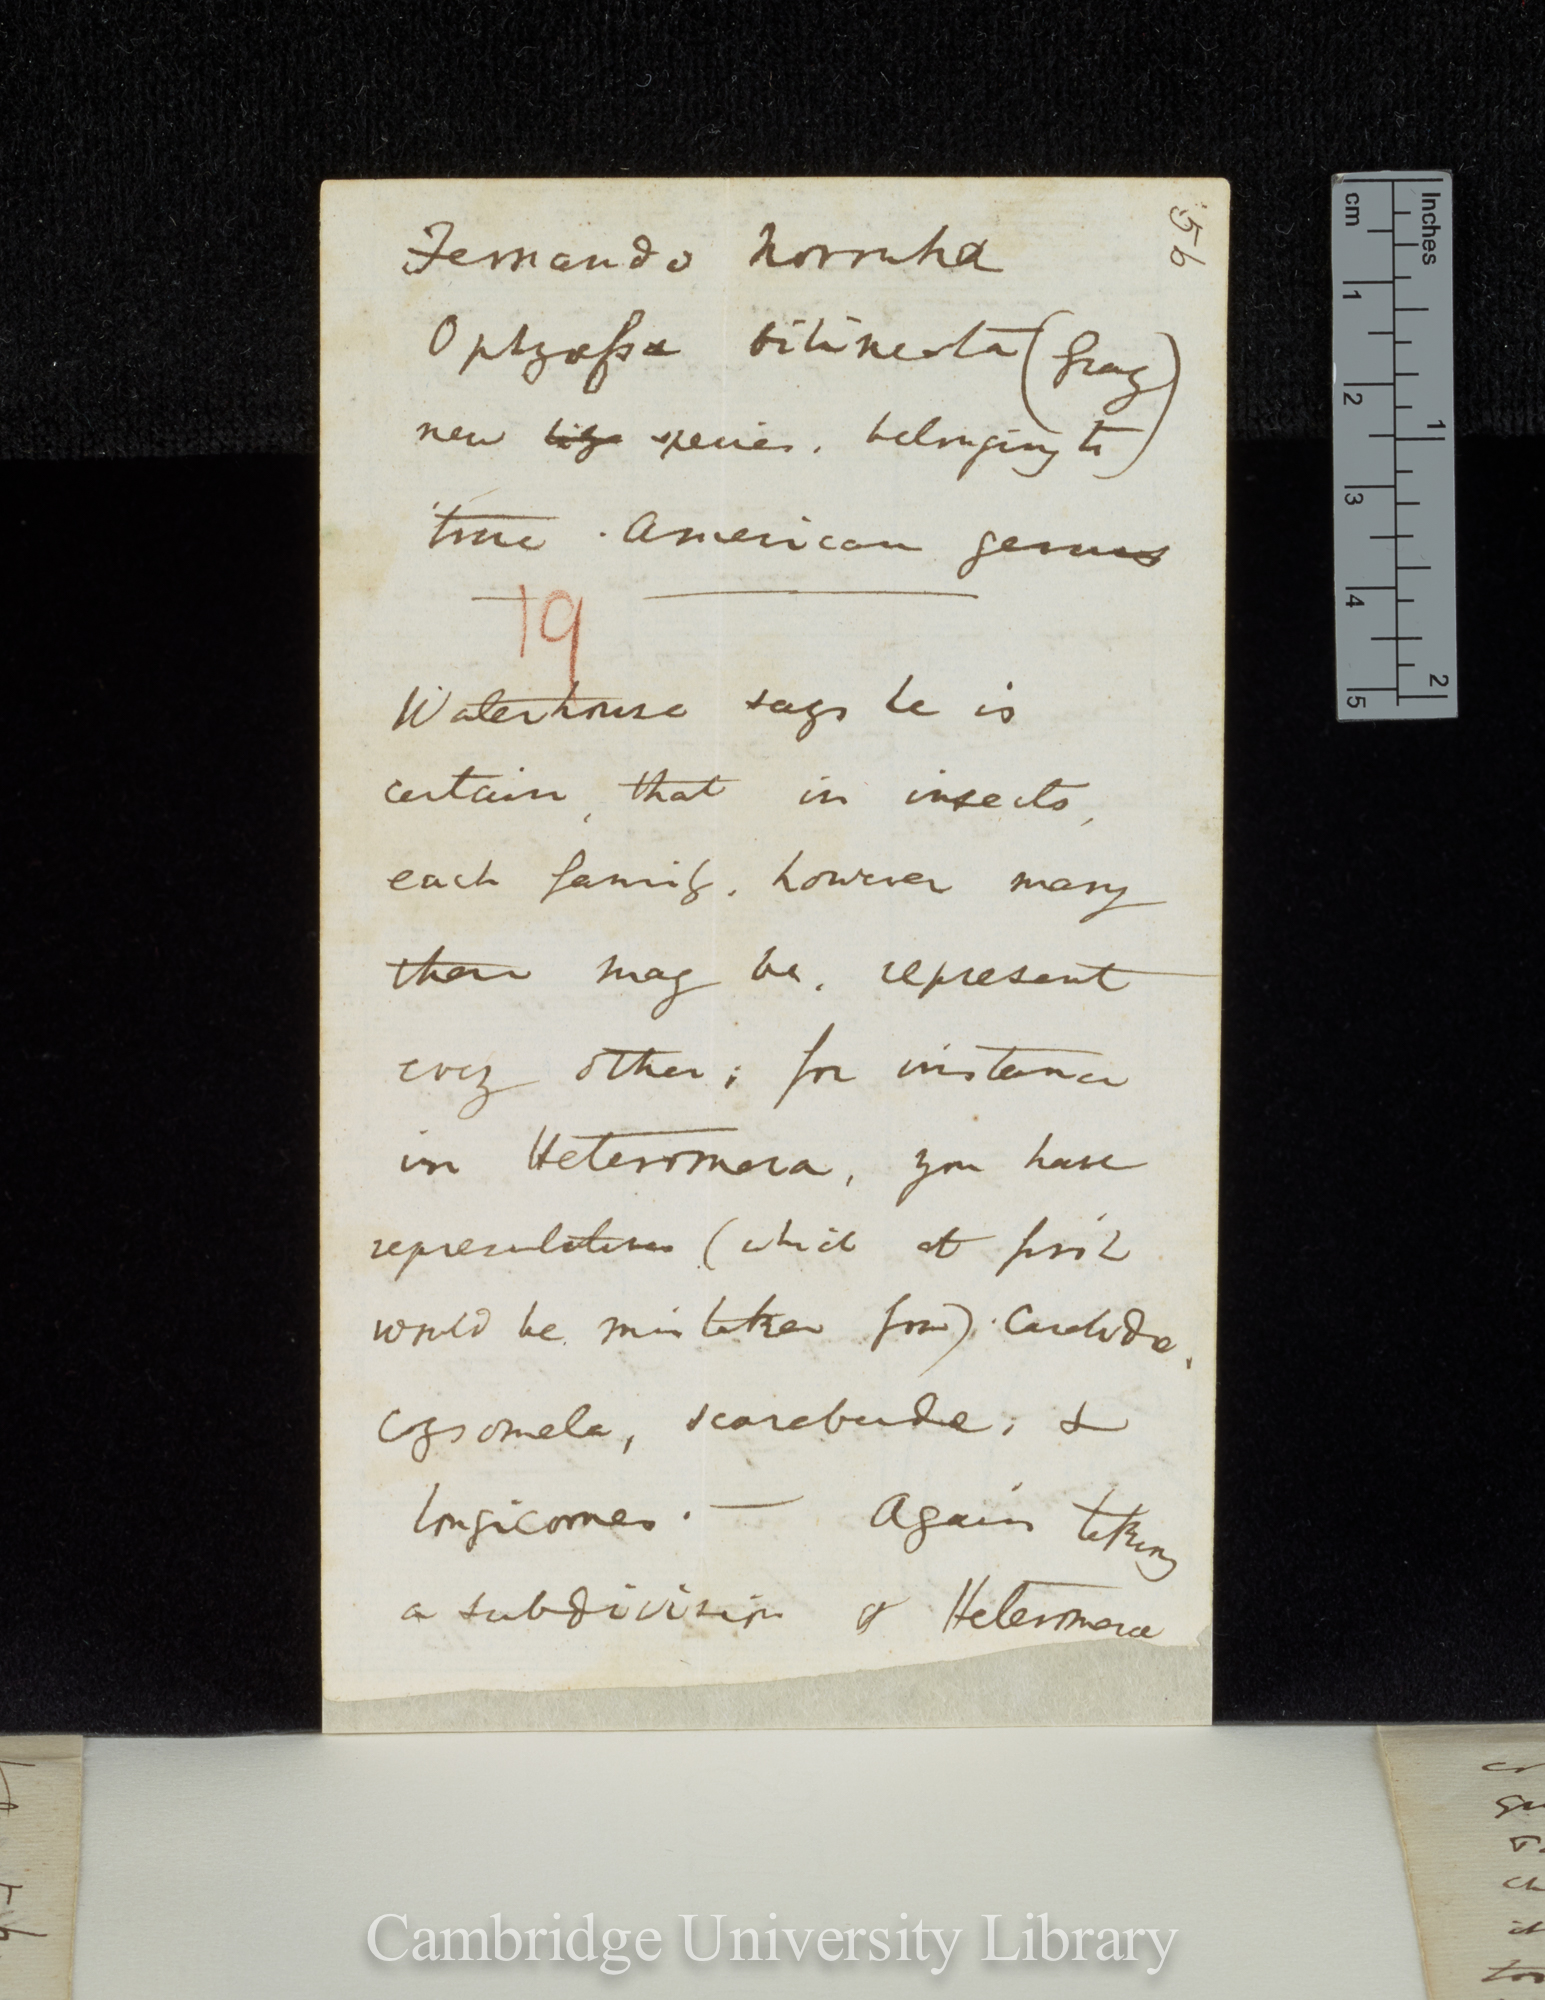 56
Fernando Norouha
Ophyessa bilineata (Gray)
new species. belonging to
true American genus
19
Waterhouse says he is
certain, that in insects,
each family, however many
there may be, represent
every other; for instance
in Heteromera, you have
representatives (which at first
would be mistaken for). Carabidae,
Crysomela, scarabeudae, &
longicornes. — Again taking
a subdivision of Heteromera
cm 1 2 3 4 5
Inches 1 2
Cambridge University Library